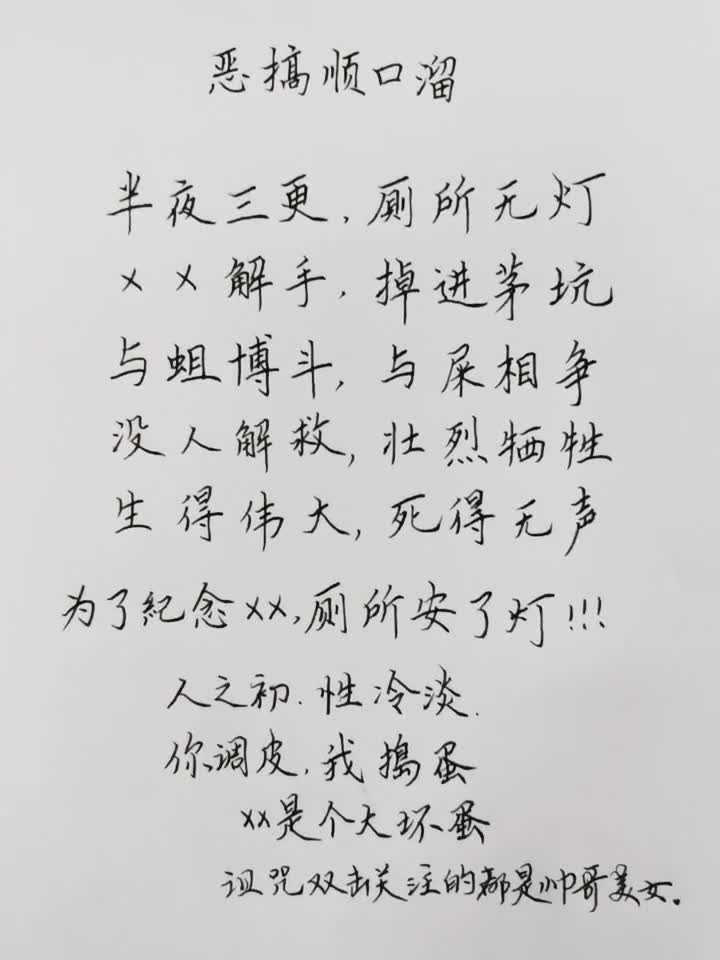 恶搞顺口溜
半夜三更,厕所无灯
××解手,掉进茅坑
与蛆博斗,与屎相争
没人解救,壮烈牺牲
生得伟大,死得无声
为了紀念××,厕所安了灯!!!
人之初.性冷淡.
你调皮,我捣蛋
××是个大坏蛋
诅咒双击关注的都是帅哥美女.